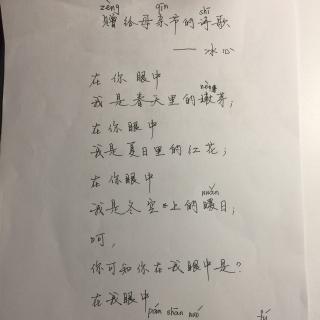 zèng qīn shī
赠给母亲节的诗歌
——冰心
在你眼中
nèn
我是春天里的嫩芽；
在你眼中
我是夏日里的红花；
在你眼中
nuǎn
我是冬空上的暖日；
呵，
你可知你在我眼中是？
在我眼中
pán shān